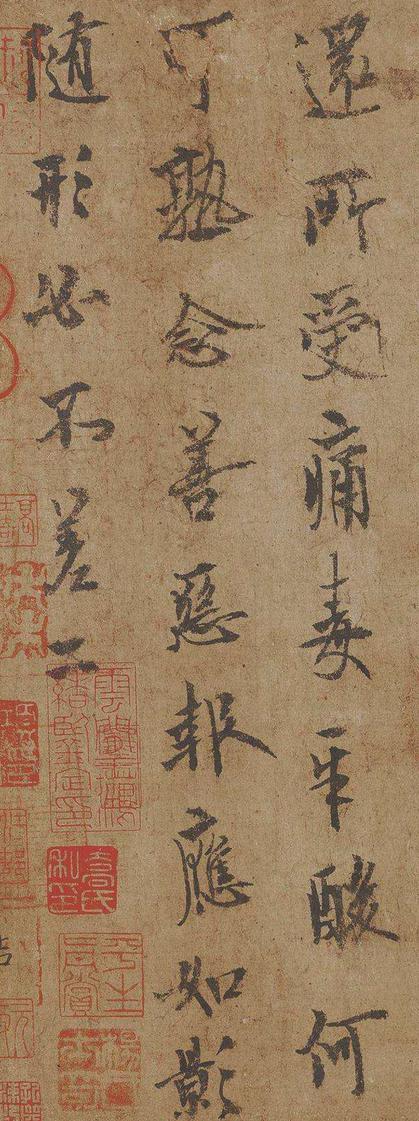 還所受痛毒辛酸何
可熟念善惡報應如影
随形必不差二
平生真賞